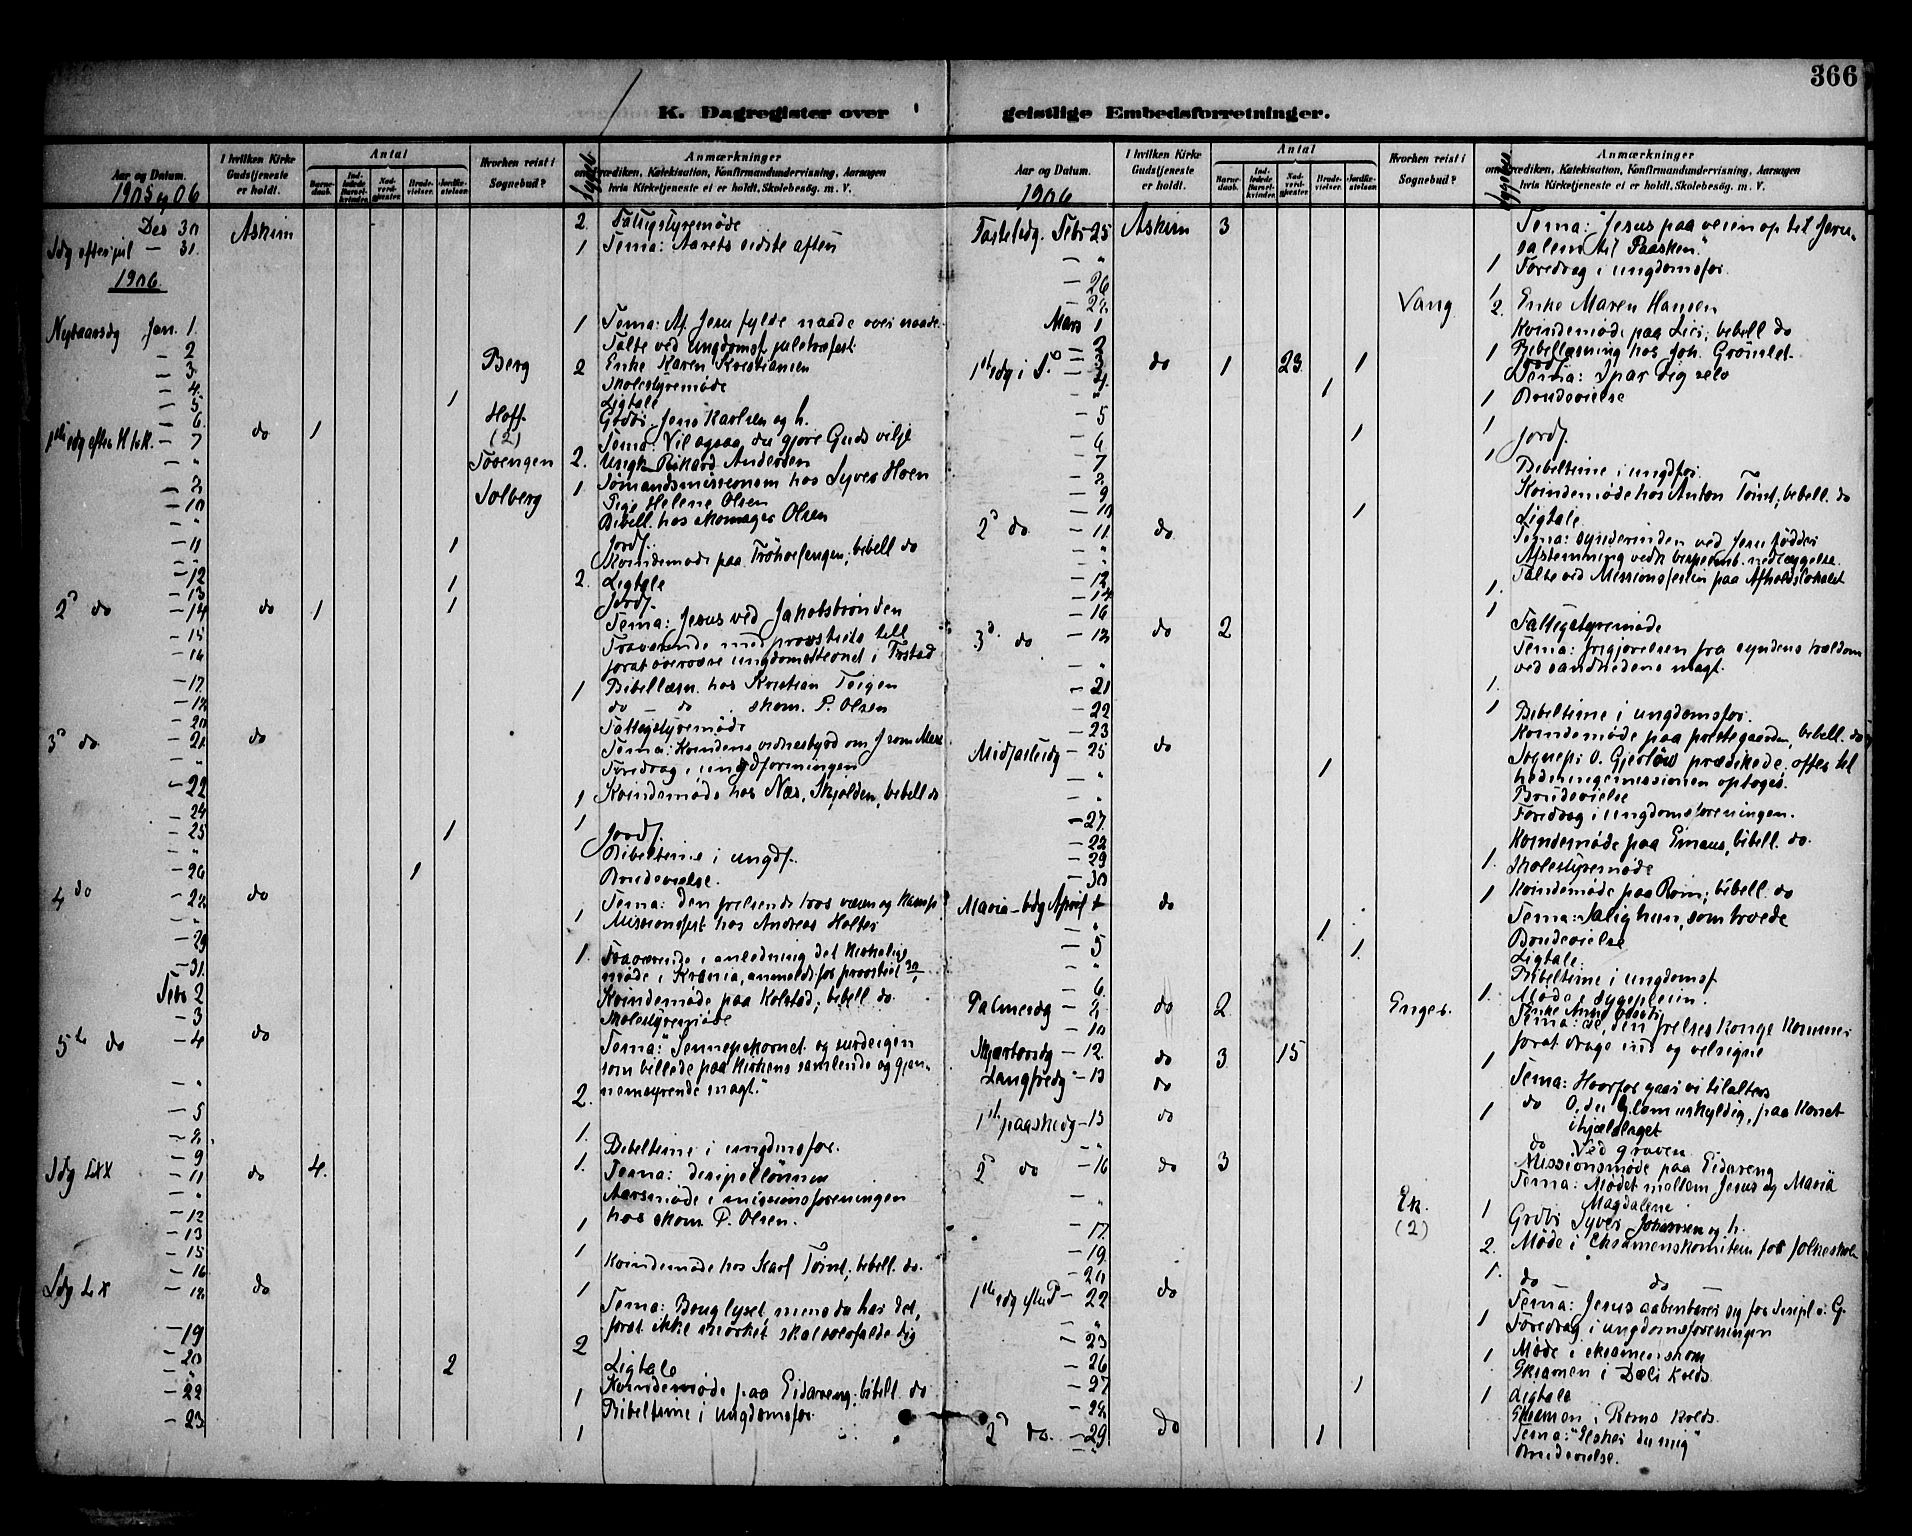 366
K. Dagregister over geistlige Embedsforretninger.
Aar og Datum.
1905 og 06
I hvilken Kirke Gudstjeneste er holdt.
Antal
Barnedaab.
Indledede Barselkvinder.
Nadverdgjæster
Brudevielser.
Jordfæstelser
Hvorhen reist i Sognebud?
Anmærkninger
om Prædiken, Katekisation, Konfirmandundervisning, Aarsagen
hvis Kirketjeneste ei er holdt, Skolebesøg. m. V.
Des 30 Askim 2 Fattigstyremøde
Sdg efter jul - 31. 1 Tema: Aarets sidste aften
1906
Nytaarsdg Jan. 1. 1 Tema: Af Jesu fylde naade over naade.
- 2 Talte ved ungdomsf. juletræfest
- 3 Berg 2 Enke Karen Kristiansen
- 4 Skolestyremøde
- 5 1 Ligtale
- 6 Hoff. (2) Grdbr. Jens Karlsen og h.
1ste sdg efter H.t.K. - 7 do 1 Tema: Vil ogsaa du gjøre Guds vilje
- " Tosengen 2. Ungk. Rikard Andersen
- 8 1. Sømandsmissionsm hos Syver Hoen
- 10 Solberg Pige Helene Olsen
- " Bibell. hos skomager Olsen
- 11 1 Jordf.
- " Kvindemøde paa Trøhaelengen; bibell do
- 12 1 2. Ligtale
- 13 Jordf.
2d do - 14 do 1 1 Tema: Jesus ved Jakobsbrønden
- 15 Fraværende med provstiets till
- 16 forat overvære ungdomsstevnet i Fystad
- 17. 1 Bibellæsn. hos Kristian Teigen
- 18 do - do skom. P. Olsen
- 20 Fattigstyremøde
3d do - 21 do Tema: Kvindens vidnesbyrd om J som Mess
- " Foredrag i ungdforeningen
- 22 1 Kvindemøde hos Næs, Skjolden, bibell do
- 24 1
- 25 1 Jordf.
- " Bibeltime i ungdf.
- 26 1 Brudevielse.
4 do - 28 do Tema: Den frelsende tros væsen og kamp
- " 1 Missionsfest hos Andreas Holter
- 29 1. Fraværende i anledning det kirkelige
- 31. møde i Krania, anmeldt for provstiet
Febr 2 Kvindemøde paa Kolstad; bibell. do.
- 3 Skolestyremøde
5te do - 4 do Tema: "Sennepskornet og surdeigen
som billede paa kirkens samlende og gjen-
- " 2. nemsyrende magt."
- 5
- 8. 1. Bibeltime i ungdmsfor.
- 9
Sdg LXX - 11 do 4. 1. Tema: disipellønnen
- " Aarsmøde i missionsforeningen
- 12 hos skom. P. Olsen.
- 13 1
- 15 1 Kvindemøde hos Karl Tømt; bibell. do.
- 16
Sdg LX - 18 do 1 Tema: Brug lyset, mens du har det,
forat ikke mørket skal overfalde dig
- 19 2
- 20 2 Ligtale
- 22 1 Kvindemøde paa Eidareng; bibell. do
- 23 Bibeltime i ungdomsfor
1
Aar og Datum.
1906
I hvilken Kirke Gudstjeneste er holdt.
Antal
Barnedaab.
Indledede Barselkvinder.
Nadverdgjæster
Brudevielser.
Jordfæstelser
Hvorhen reist i Sognebud?
Anmærkninger
om Prædiken, Katekisation, Konfirmandundervisning, Aarsagen
hvis Kirketjeneste ei er holdt, Skolebesøg. m. V.
Fastelsdg. Febr 25 Askim 3 Tema: "Jesus paa veien op til Jeru-
salem til Paasken"
- " 1 Foredrag i ungdomsfor.
- 26 1
- 28 Vang 2. Enke Maren Hansen
Mars 1 Kvindemøde paa Lier; bibell do
- 2 1 Bibellæsning hos Joh. Grønslet
1ste sdg i F. - 4. do 1 23 1 Tema: Spar dig selv
- " 1 1 Brudevielse
- 5 1
- 6 1 Jordf.
- 7 1 Bibeltime i ungdfor
- 8 Kvindemøde hos Anton Tømt, bibell. do
- 9
- 10 1 Ligtale
2d do - 11 do Tema: synderinden ved Jesu fødder
- " Afstemning vedk brændevinb. nedlæggelse
- 12 Talte ved Missionsfesten paa Afholdslokalet
- 14 1.
- 16 1 Fattigstyremøde
3d. do - 18 do 2 Tema: frigjørelsen fra syndens trældom
- " ved sandhedens magt.
- 21 1.
- 22 1 Bibeltime i ungdomsfor.
- 23 Kvindemøde paa prestegaarden, bibell. do
Midfastesdg - 25 do Sognepr. O. Gjerløw prædikede, offer til
- " 1 hedningemissionen optoges.
- " Brudevielse
- 27. Foredrag i ungdomsforeningen.
- 28 Kvindemøde paa Emaus, bibell. do.
- 29 1. Skolestyremøde
- 30 1 Kvindemøde paa Rom; bibell. do
Maria-bdg April 1 do Tema: Salig hun, som troede
- " 1 Brudevielse
- 5 1. Ligtale.
- " Bibeltime i ungdomsf
- 6 1. Møde i sygepleien.
Palmesdg - 8 do 2 Enger. Enke Anne
- 10 Tema: Se, den frelses konge kommer
forat drage ind og velsigne
Skjærtorsdg - 12. do 3 15 1 Tema: Hvorfor gaar vi til alters
Langfredg - 13 do do O, du Gud lam uskyldig, paa korset
1ste paaskedg - 15 do 1 ihjælslaget
do Ved graven
- " Missionsmøde paa Eidareng
2d do - 16 do 3 Tema: Mødet mellem Jesus og Maria
Magdalene
- " Ek. (2) 1 Grdbr Syver Johannsen og h.
- 17. 2. Møde i eksamenskomiteen for folkeskolen
- 19
- 20 1. do do
1ste sdg efter P - 22 do Tema: Jesus aabenbarer sig for disipl i G.
- " 1 Foredrag i ungdomsforeningen
- 23 Møde i eksamenskom
- 26 1 Eksamen i Dæli kolds
- 27 1 1 Ligtale
- 28 Eksamen i Roms kolds.
2d do. - 29 do 1 Tema: "Elsker du mig"
- " Brudevielse.